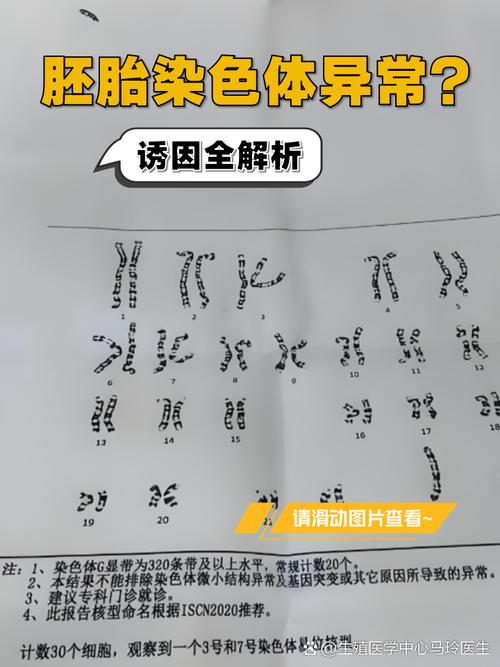 胚胎染色体异常?
诱因全解析
1 2 3 4 5
6 7 8 9 10 11 12
13 14 15 16 17 18
19 20 21
请滑动图片查看~
注：1、染色体G显带为320条带及以上水平，常规计数20个。
2、本结果不能排除染色体微小结构异常及基因突变或其它原因所导致的异常。
3、建议专科门诊就诊。
4、此报告核型命名根据ISCN2020推荐。
计数30个细胞，观察到一个3号和7号染色体易位核型
@生殖医学中心马玲医生